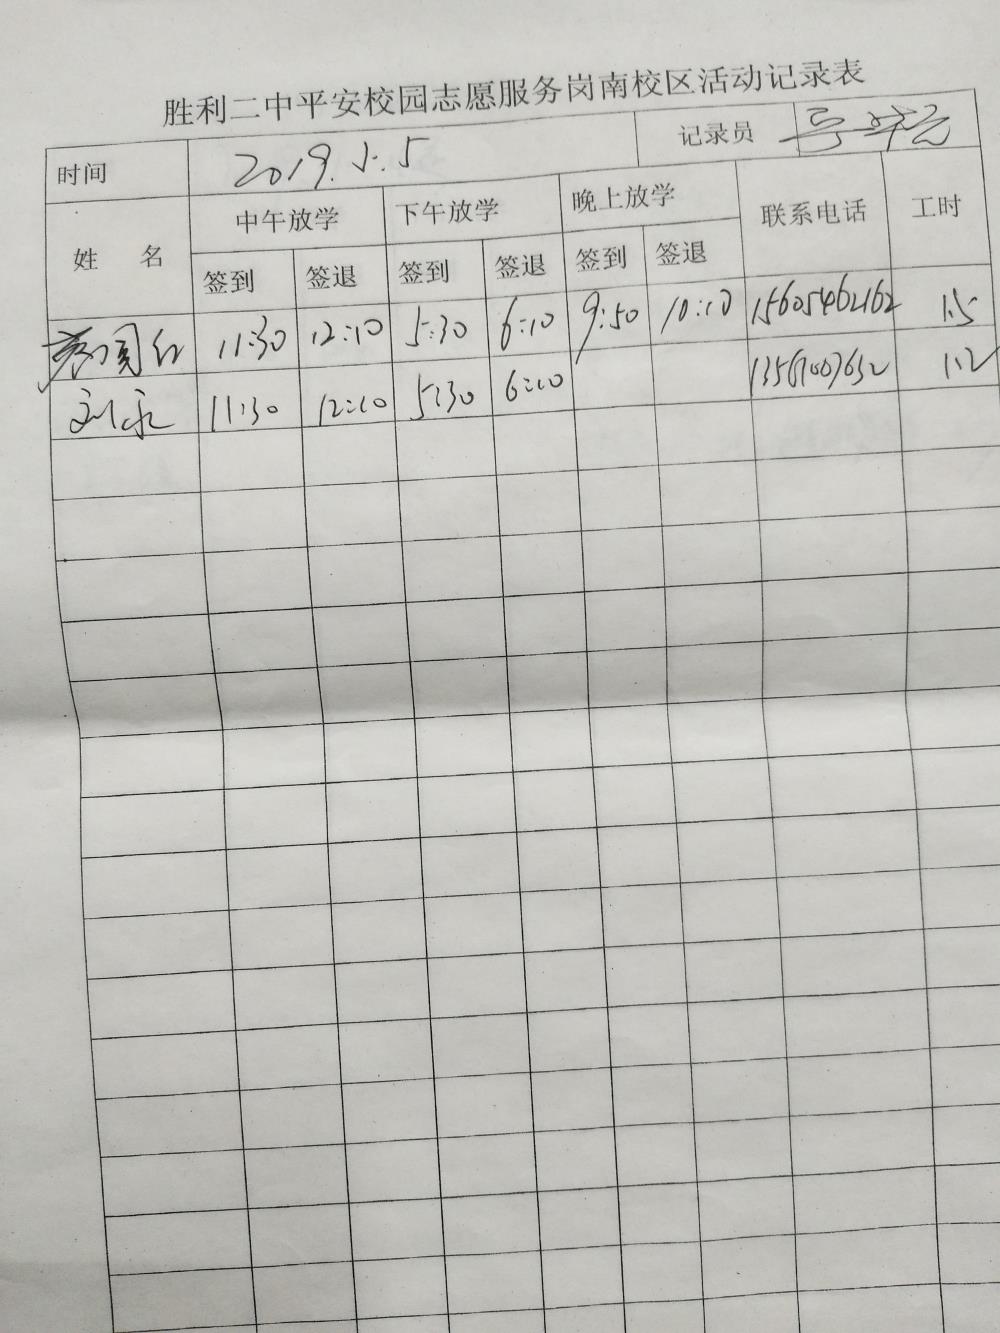 胜利二中平安校园志愿服务岗南校区活动记录表
时间 2019.5.5 记录员
姓 名 中午放学 下午放学 晚上放学 联系电话 工时
签到 签退 签到 签退 签到 签退
国红 11:30 12:10 5:30 6:10 9:50 10:10 15605462162 1.5
刘永 11:30 12:10 5:30 6:10 1.2